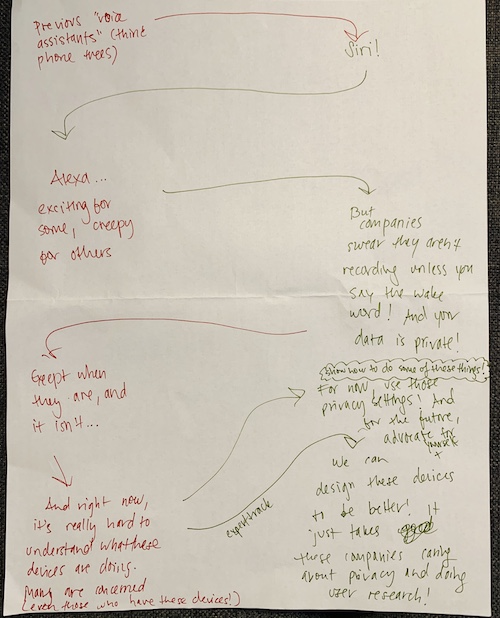 Previous "voice
assistants" (think
phone trees)
Siri!
Alexa...
exciting for
some, creepy
for others
But
companies
swear they aren't
recording unless you
say the wake
word! And your
data is private!
Except when
they are, and
it isn't...
And right now,
it's really hard to
understand what these
devices are doing.
Many are concerned
(even those who have these devices!)
Show how to do some of these things!
For now use those
privacy settings! And
for the future,
advocate for
yourself
+
expert track
We can
design these devices
to be better! It
just takes
those companies caring
about privacy and doing
user research!